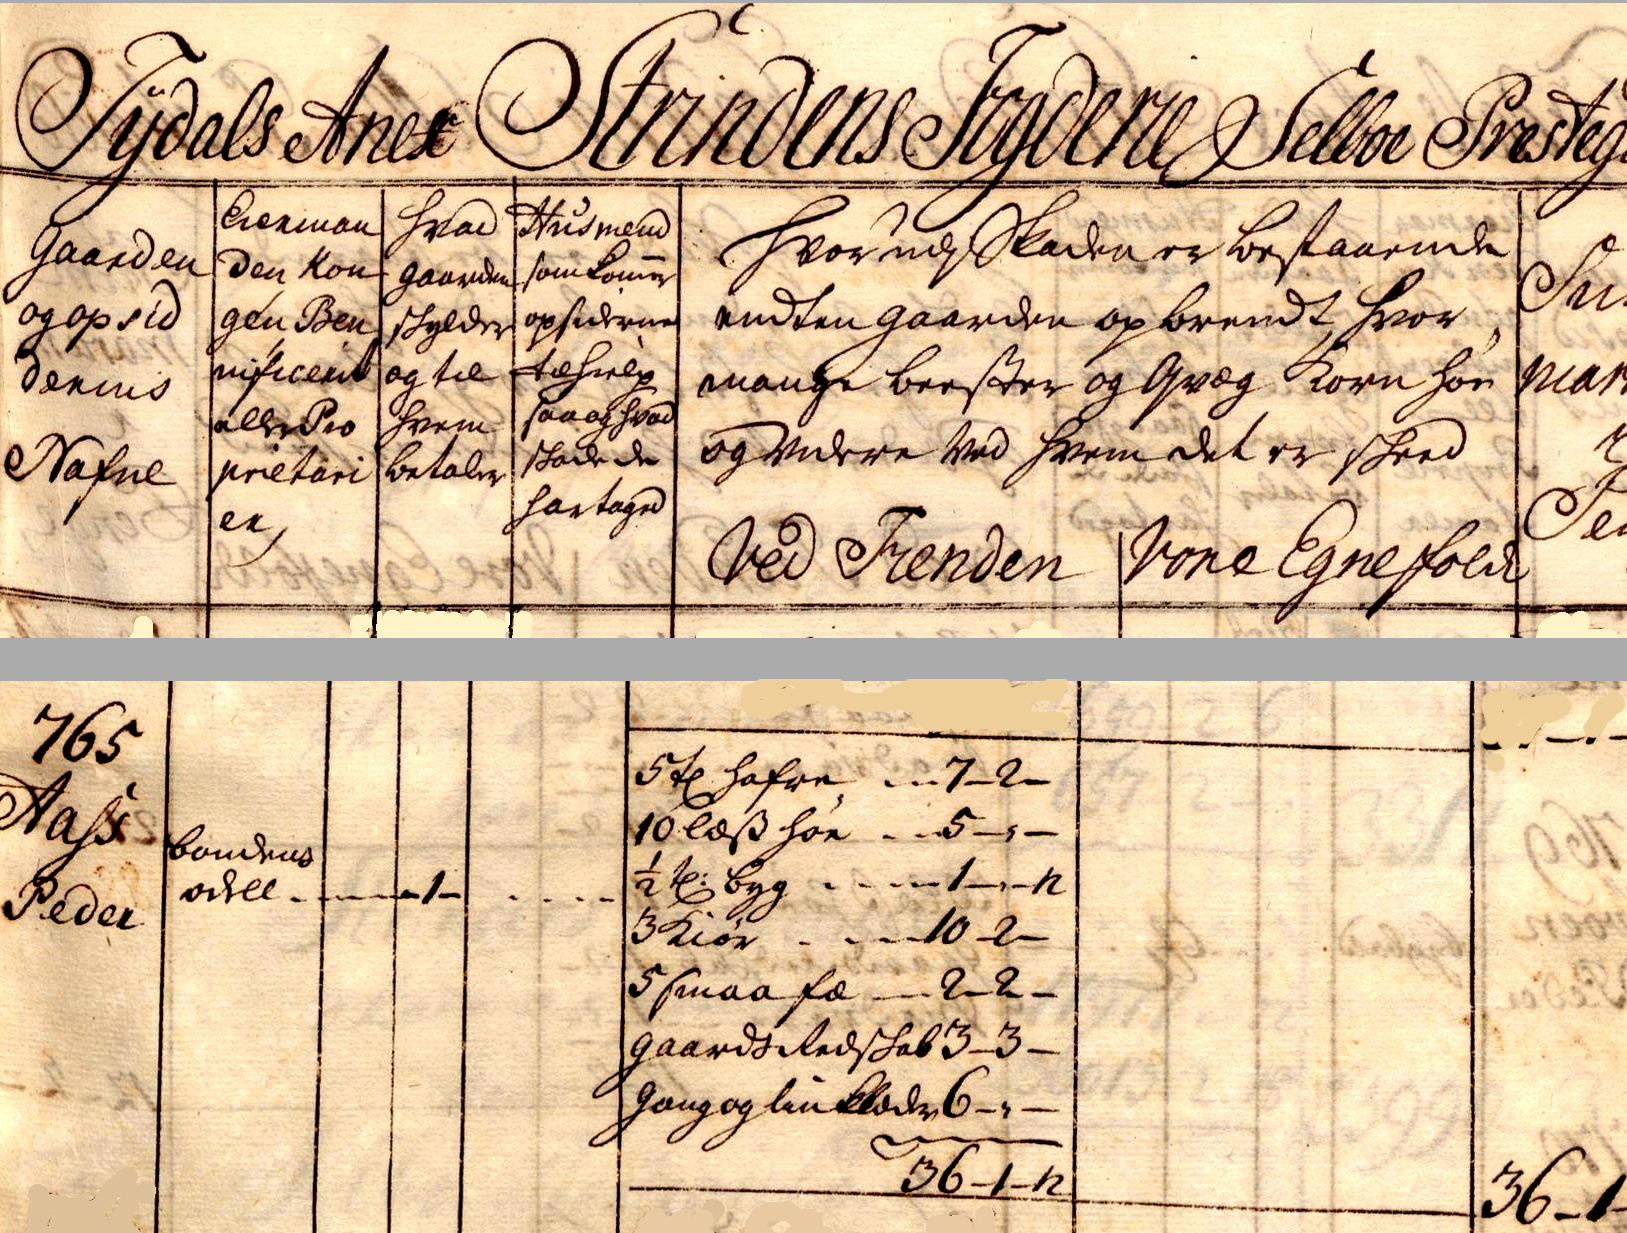 Tÿdals Anex Strindens Fogderie Selboe Presteg
Gaarden
og opsid
dernis
Nafne
Eierman
den Kon
gen Ben
nificerit
eller Pro
prietari
er,
hvad
gaarden
skylder
og til
hvem
betaler
Husmend
som komer
opsiderne
til hielp
saa og hvad
skade de
har taged
hvor udj Skaden er bestaaende
endten gaarden opbrendt, hvor
mange beester og Qvæg Korn høe
og videre ved hvem det er skeed
Ved Fienden
Vore Egne folck
765
Aass
Peder
bondens
odell - - - 1 -
5 tr hafre - - 7 - 2 -
10 læss høe - - 5 - , -
½ tr: byg - - - 1 - , - 12
3 Kiør - - - 10 - 2 -
5 smaa fæ - 2 - 2 -
gaards Redskab 3 - 3 -
gang og lin klæder 6 - , -
36 - 1 - 12
36 - 1 -